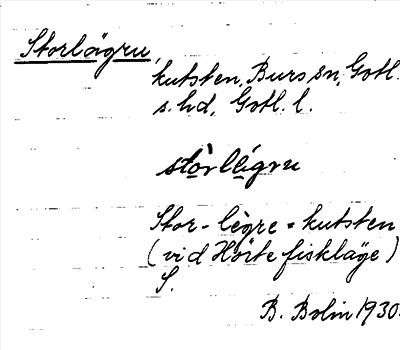 Storlägru,
kutsten, Burs sn, Gotl.
s. hd, Gotl. l.
stòrlégru
Stor-lègre = kutsten
(vid Hörte fiskläge)
S.
B. Bolin 1930.